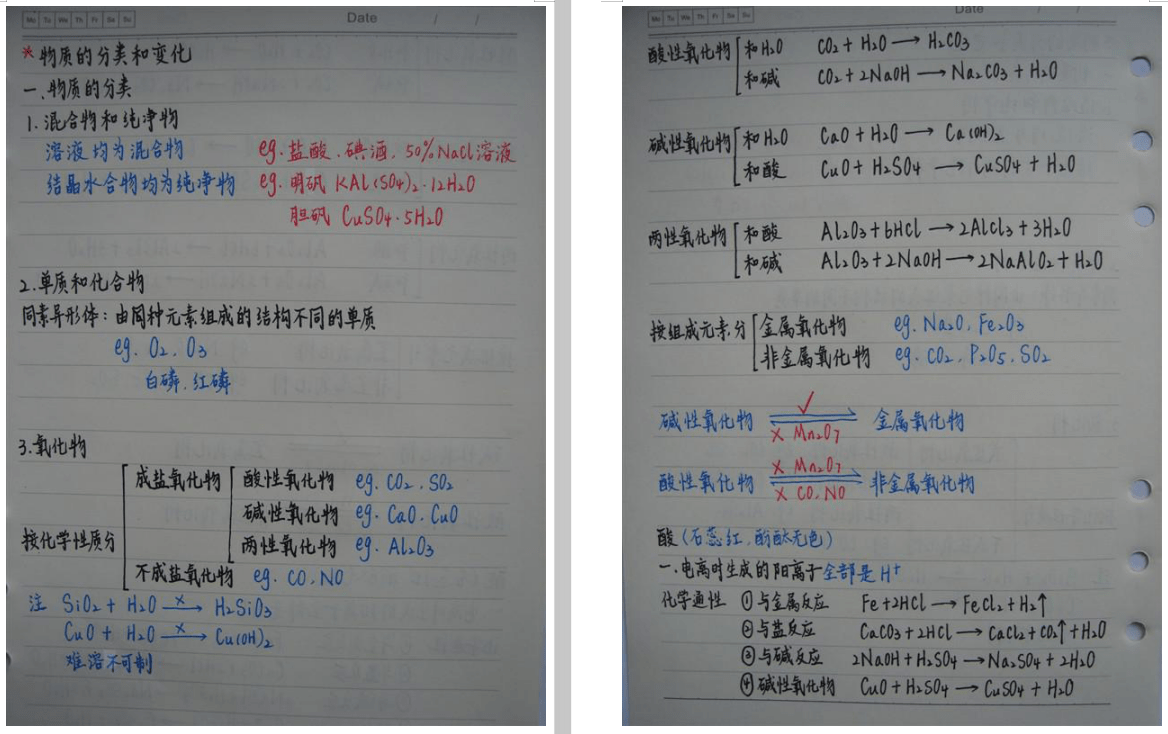 Mo Tu We Th Fr Sa Su
Date / /
* 物质的分类和变化
一.物质的分类
1.混合物和纯净物
溶液均为混合物 eg.盐酸.碘酒.50%NaCl溶液
结晶水合物均为纯净物 eg.明矾 KAl(SO4)2·12H2O
胆矾 CuSO4·5H2O
2.单质和化合物
同素异形体：由同种元素组成的结构不同的单质
eg. O2. O3
白磷.红磷
3.氧化物
按化学性质分
成盐氧化物 酸性氧化物 eg. CO2. SO2
碱性氧化物 eg. CaO. CuO
两性氧化物 eg. Al2O3
不成盐氧化物 eg. CO. NO
注 SiO2 + H2O —×→ H2SiO3
CuO + H2O —×→ Cu(OH)2
难溶不可制
Mo Tu We Th Fr Sa Su
Date / /
酸性氧化物 和H2O CO2 + H2O → H2CO3
和碱 CO2 + 2NaOH → Na2CO3 + H2O
碱性氧化物 和H2O CaO + H2O → Ca(OH)2
和酸 CuO + H2SO4 → CuSO4 + H2O
两性氧化物 和酸 Al2O3 + 6HCl → 2AlCl3 + 3H2O
和碱 Al2O3 + 2NaOH → 2NaAlO2 + H2O
按组成元素分 金属氧化物 eg. Na2O, Fe2O3
非金属氧化物 eg. CO2. P2O5. SO2
√
碱性氧化物 ⇌ 金属氧化物
× Mn2O7
× Mn2O7
酸性氧化物 ⇌ 非金属氧化物
× CO. NO
酸 (石蕊红,酚酞无色)
一.电离时生成的阳离子全部是H+
化学通性 ①与金属反应 Fe + 2HCl → FeCl2 + H2↑
②与盐反应 CaCO3 + 2HCl → CaCl2 + CO2↑ + H2O
③与碱反应 2NaOH + H2SO4 → Na2SO4 + 2H2O
④碱性氧化物 CuO + H2SO4 → CuSO4 + H2O